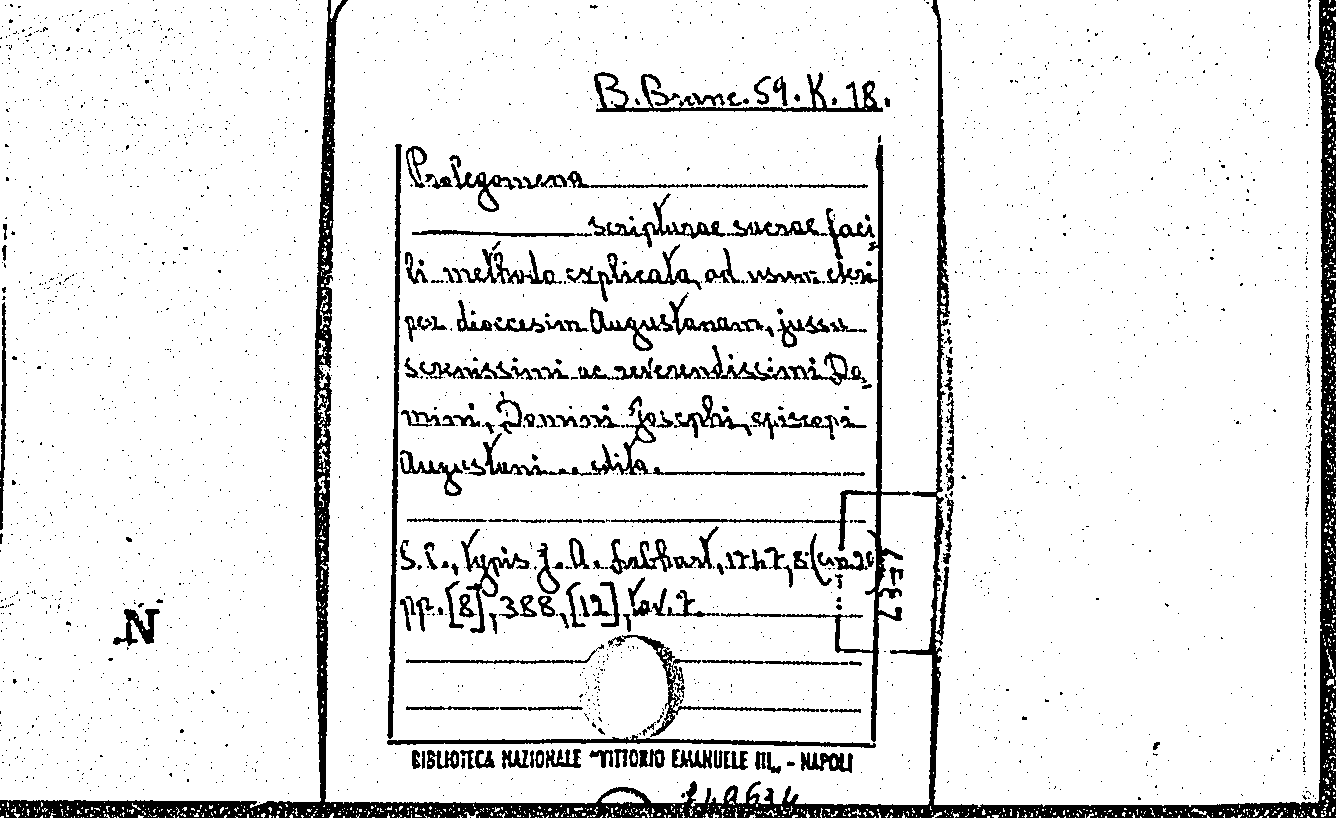 B. Branc. 59. K. 18.
Prolegomena
scripturae sacrae faci
li methodo explicata, ad usum cleri
per dioecesim Augustanam, jussu
serenissimi ac reverendissimi Do,
mini, Domini Josephi, episcopi
Augustani... edita.
S. l., typis J. A. Labhart, 1747, 8 (cm 20)
pp. [8], 388, [12], tav. 7.
BIBLIOTECA NAZIONALE "VITTORIO EMANUELE III„ - NAPOLI
N